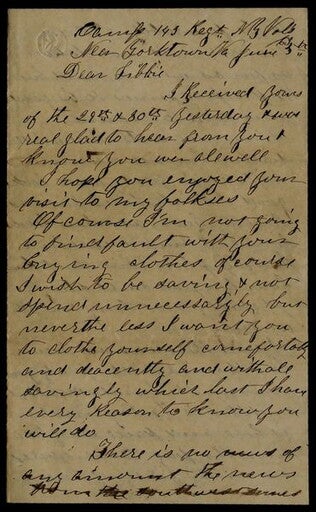 Camp 143 Regt. N.Y. Vols
Near Yorktown Va June 3rd
Dear Libbie
I Received yours
of the 29th & 30th yesterday & was
real glad to hear from you &
know you were well
I hope you enjoyed your
visit to my folkses
Of course I'm not going
to find fault with your
buying clothes of course
I wish to be saving & not
spend unnecessarily but
never the less I want you
to clothe yourself comfortably
and deacently and withall
savingly which last I have
every Reason to know you
will do
There is no news of
any amount the news
from the southwest comes